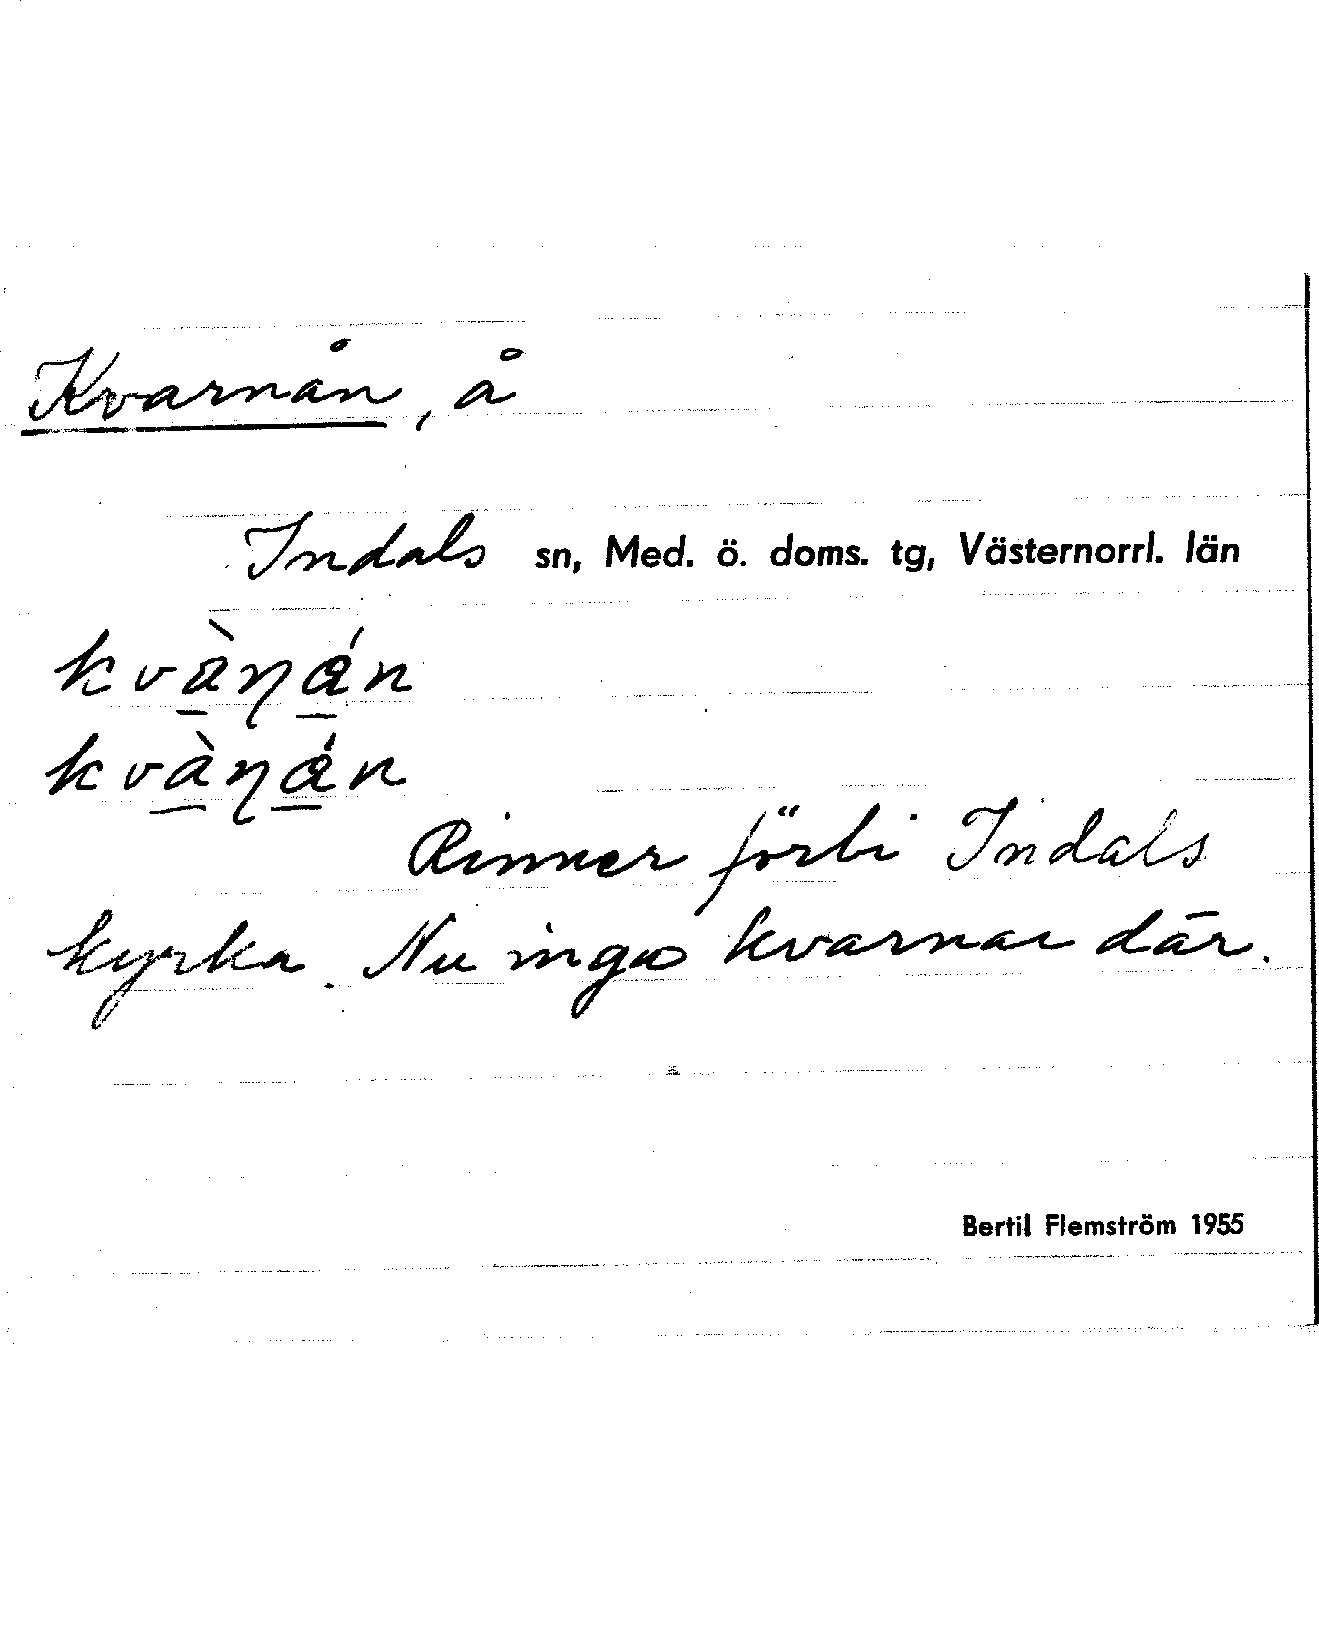 Kvarnån, å
Indals sn, Med. ö. doms. tg, Västernorrl. län
kvàɳán
kvàɳán
Rinner förbi Indals
kyrka. Nu inga kvarnar där.
Bertil Flemström 1955